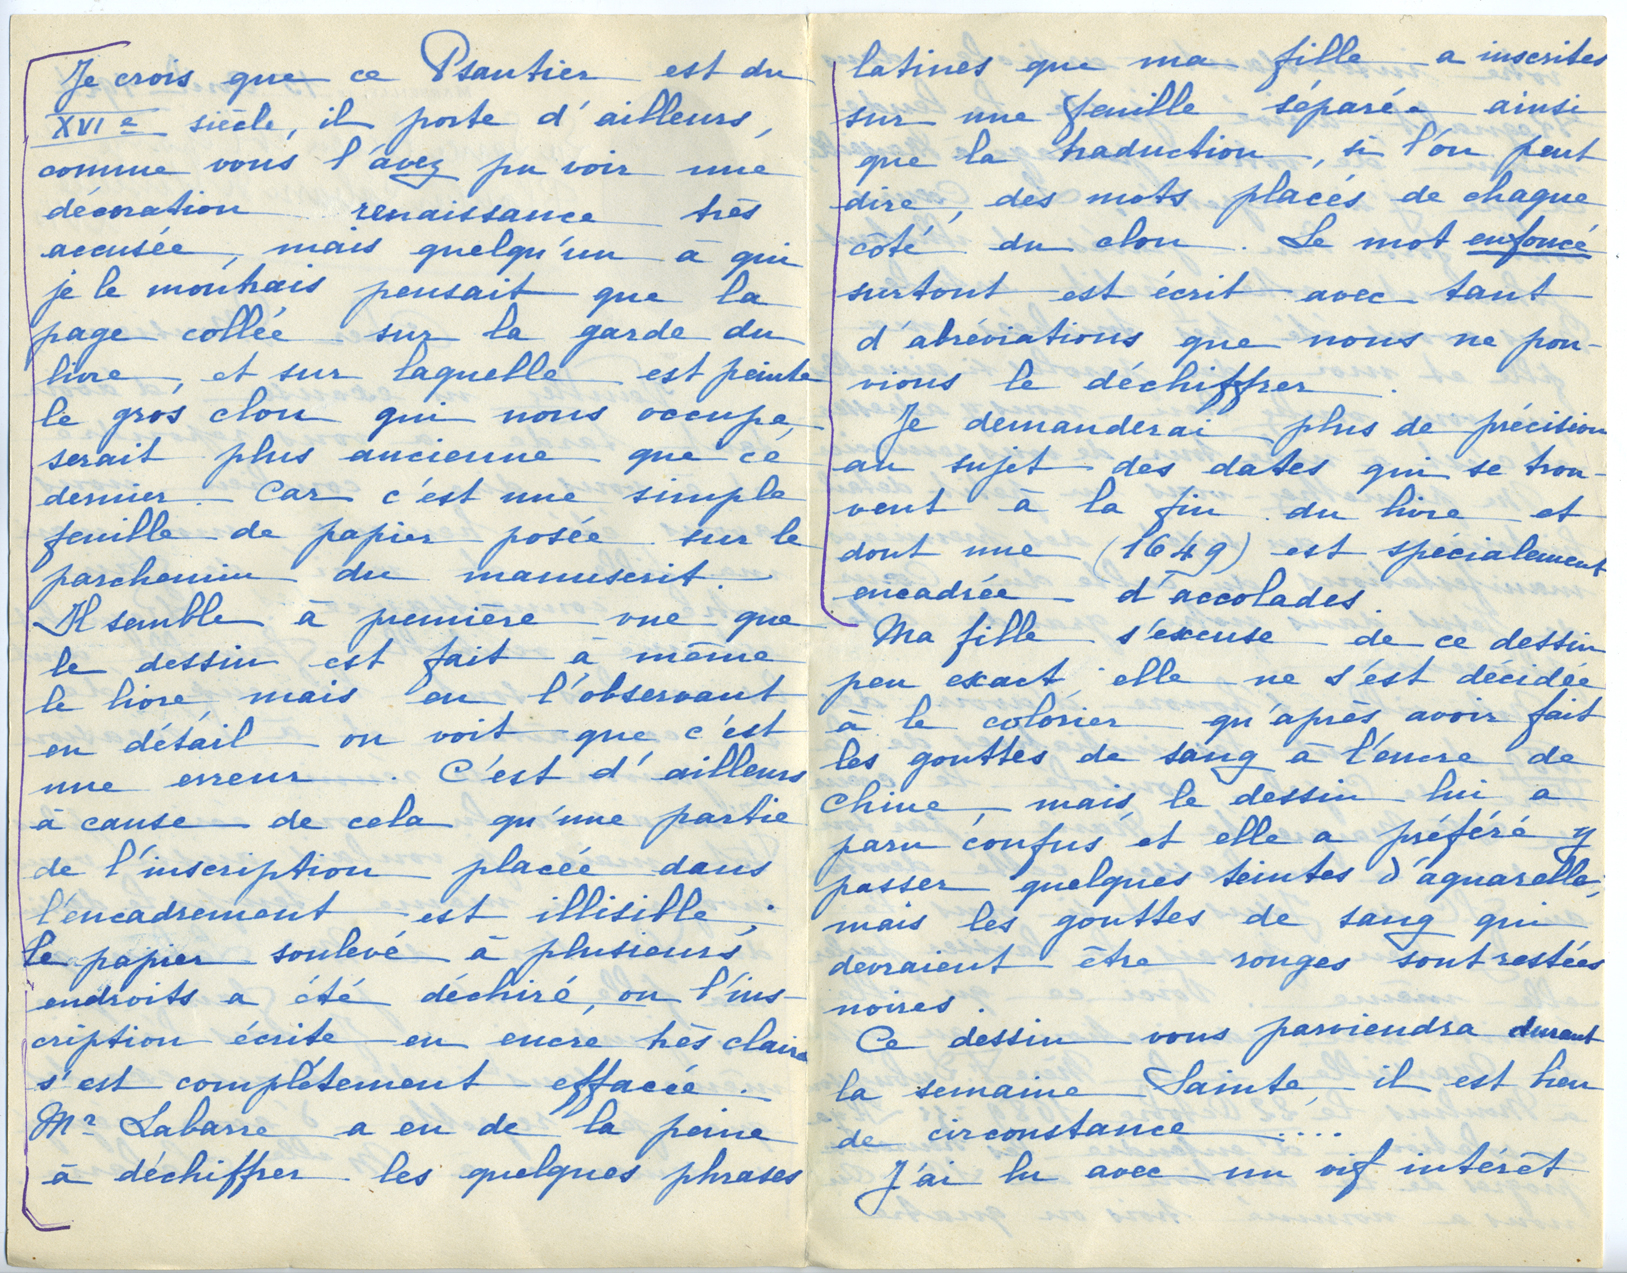 Je crois que ce Psautier est du
XVIe siècle, il porte d'ailleurs,
comme vous l'avez pu voir une
décoration renaissance très
accusée, mais quelqu'un à qui
je le montrais pensait que la
page collée sur la garde du
livre, et sur laquelle est peinte
le gros clou qui nous occupe,
serait plus ancienne que ce
dernier. Car c'est une simple
feuille de papier posée sur le
parchemin du manuscrit.
Il semble à première vue que
le dessin est fait à même
le livre, mais en l'observant
en détail on voit que c'est
une erreur. C'est d'ailleurs
à cause de cela qu'une partie
de l'inscription placée dans
l'encadrement est illisible;
le papier soulevé à plusieurs
endroits a été déchiré, ou l'ins-
cription écrite en encre très claire
s'est complètement effacée.
Mr Labarre a eu de la peine
à déchiffrer les quelques phrases
latines que ma fille a inscrites
sur une feuille séparée ainsi
que la traduction, si l'on peut
dire, des mots placés de chaque
côté du clou. Le mot enfoncé
surtout est écrit avec tant
d'abréviations que nous ne pou-
vions le déchiffrer.
Je demanderai plus de précision
au sujet des dates qui se trou-
vent à la fin du livre et
dont une (1649) est spécialement
encadrée d'accolades.
Ma fille s'excuse de ce dessin
peu exact, elle ne s'est décidée
à le colorier qu'après avoir fait
les gouttes de sang à l'encre de
Chine, mais le dessin lui a
paru confus et elle a préféré y
passer quelques teintes d'aquarelle;
mais les gouttes de sang qui
devraient être rouges sont restées
noires.
Ce dessin vous parviendra durant
la semaine Sainte, il est bien
de circonstance ....
J'ai lu avec un vif intérêt